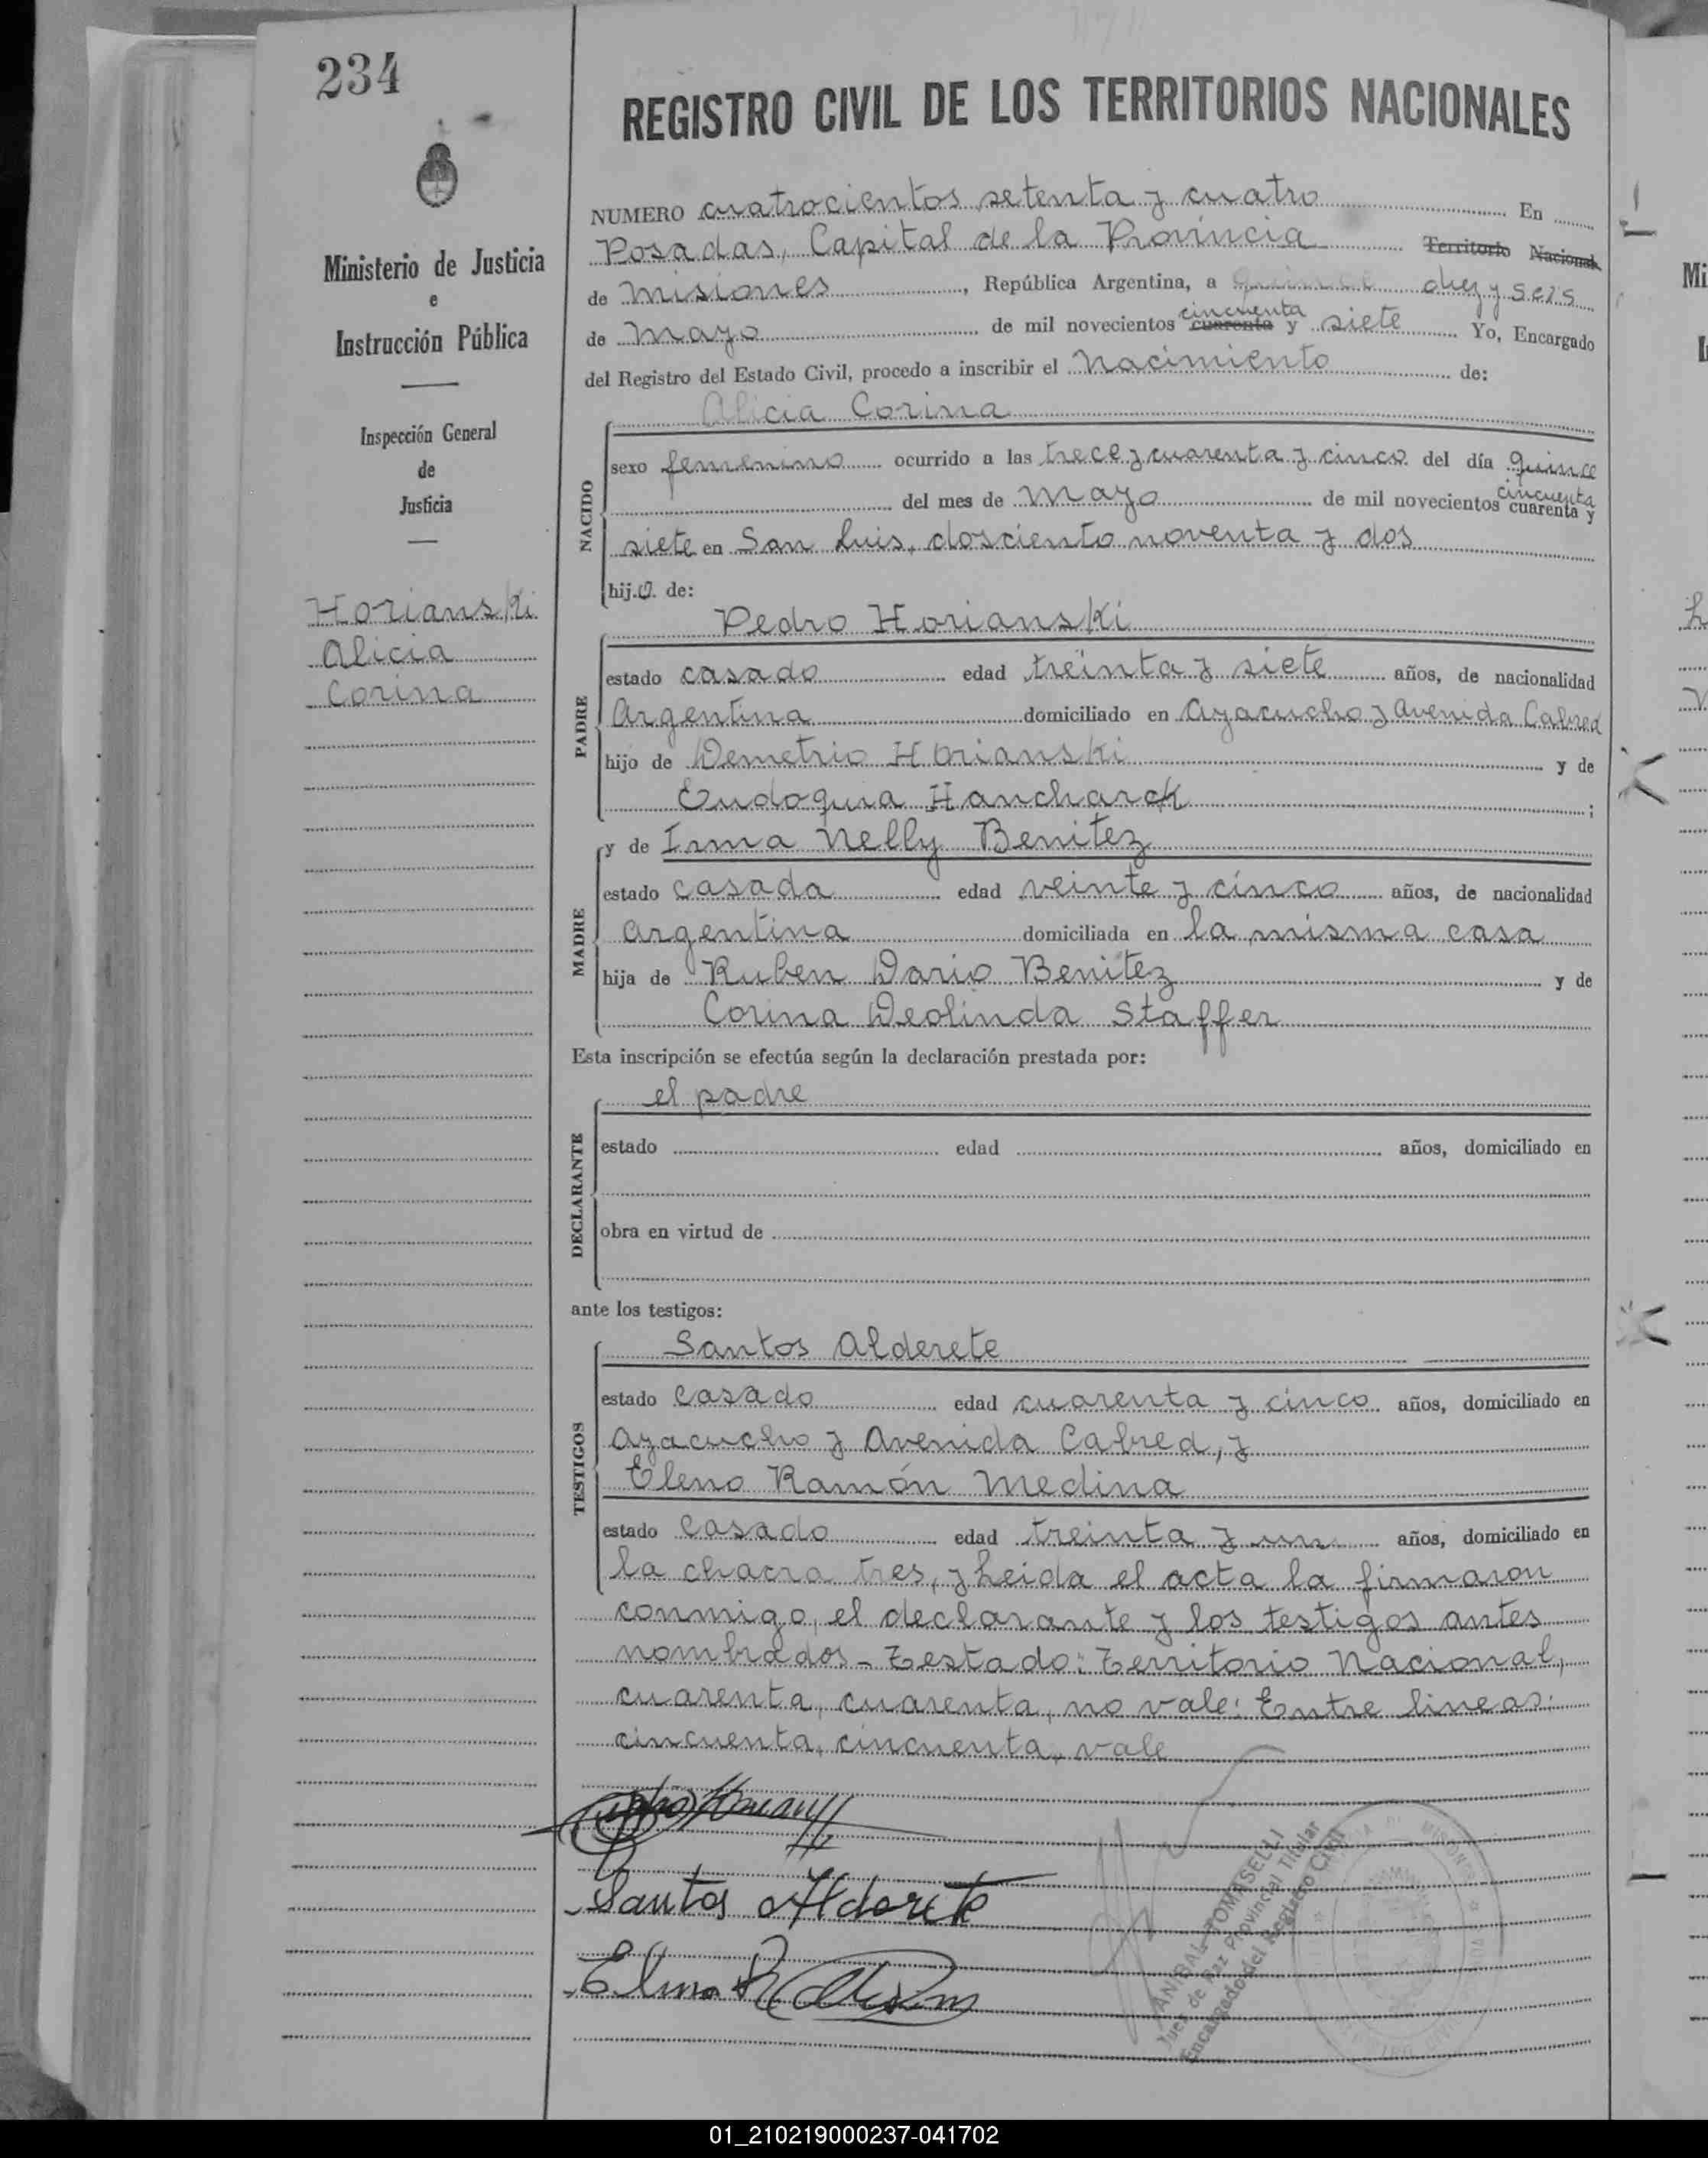 234
REGISTRO CIVIL DE LOS TERRITORIOS NACIONALES
Ministerio de Justicia
e
Instrucción Pública
Inspección General
de
Justicia
Horianski
Alicia
Corina
NUMERO cuatrocientos setenta y cuatro En
Posadas, Capital de la Provincia Territorio Nacional
de Misiones, República Argentina, a diez y seis
de Mayo de mil novecientos cuarenta cincuenta y siete Yo, Encargado
del Registro del Estado Civil, procedo a inscribir el Nacimiento de:
Alicia Corina
NACIDO
sexo femenino ocurrido a las trece y cuarenta y cinco del día quince
del mes de Mayo de mil novecientos cuarenta cincuenta y
siete en San Luis, dosciento noventa y dos
hij.a. de:
Pedro Horianski
PADRE
estado casado edad treinta y siete años, de nacionalidad
Argentina domiciliado en Ayacucho y Avenida Cabred
hijo de Demetrio Horianski y de
Eudoquia Hancharck;
MADRE
y de Irma Nelly Benitez
estado casada edad veinte y cinco años, de nacionalidad
Argentina domiciliada en la misma casa
hija de Ruben Dario Benitez y de
Corina Deolinda Staffer
Esta inscripción se efectúa según la declaración prestada por:
el padre
DECLARANTE
estado edad años, domiciliado en
obra en virtud de
ante los testigos:
Santos Alderete
TESTIGOS
estado casado edad cuarenta y cinco años, domiciliado en
Ayacucho y Avenida Cabred, y
Eleno Ramón Medina
estado casado edad treinta y un años, domiciliado en
la chacra tres, y leida el acta la firmaron
conmigo, el declarante y los testigos antes
nombrados - Testado: Territorio Nacional,
cuarenta, cuarenta, no vale: Entre lineas:
cincuenta, cincuenta, vale
Santos Alderete
ANIBAL TOMASELLI
Juez de Paz Provincial Titular
Encargado del Registro Civil
01_210219000237-041702